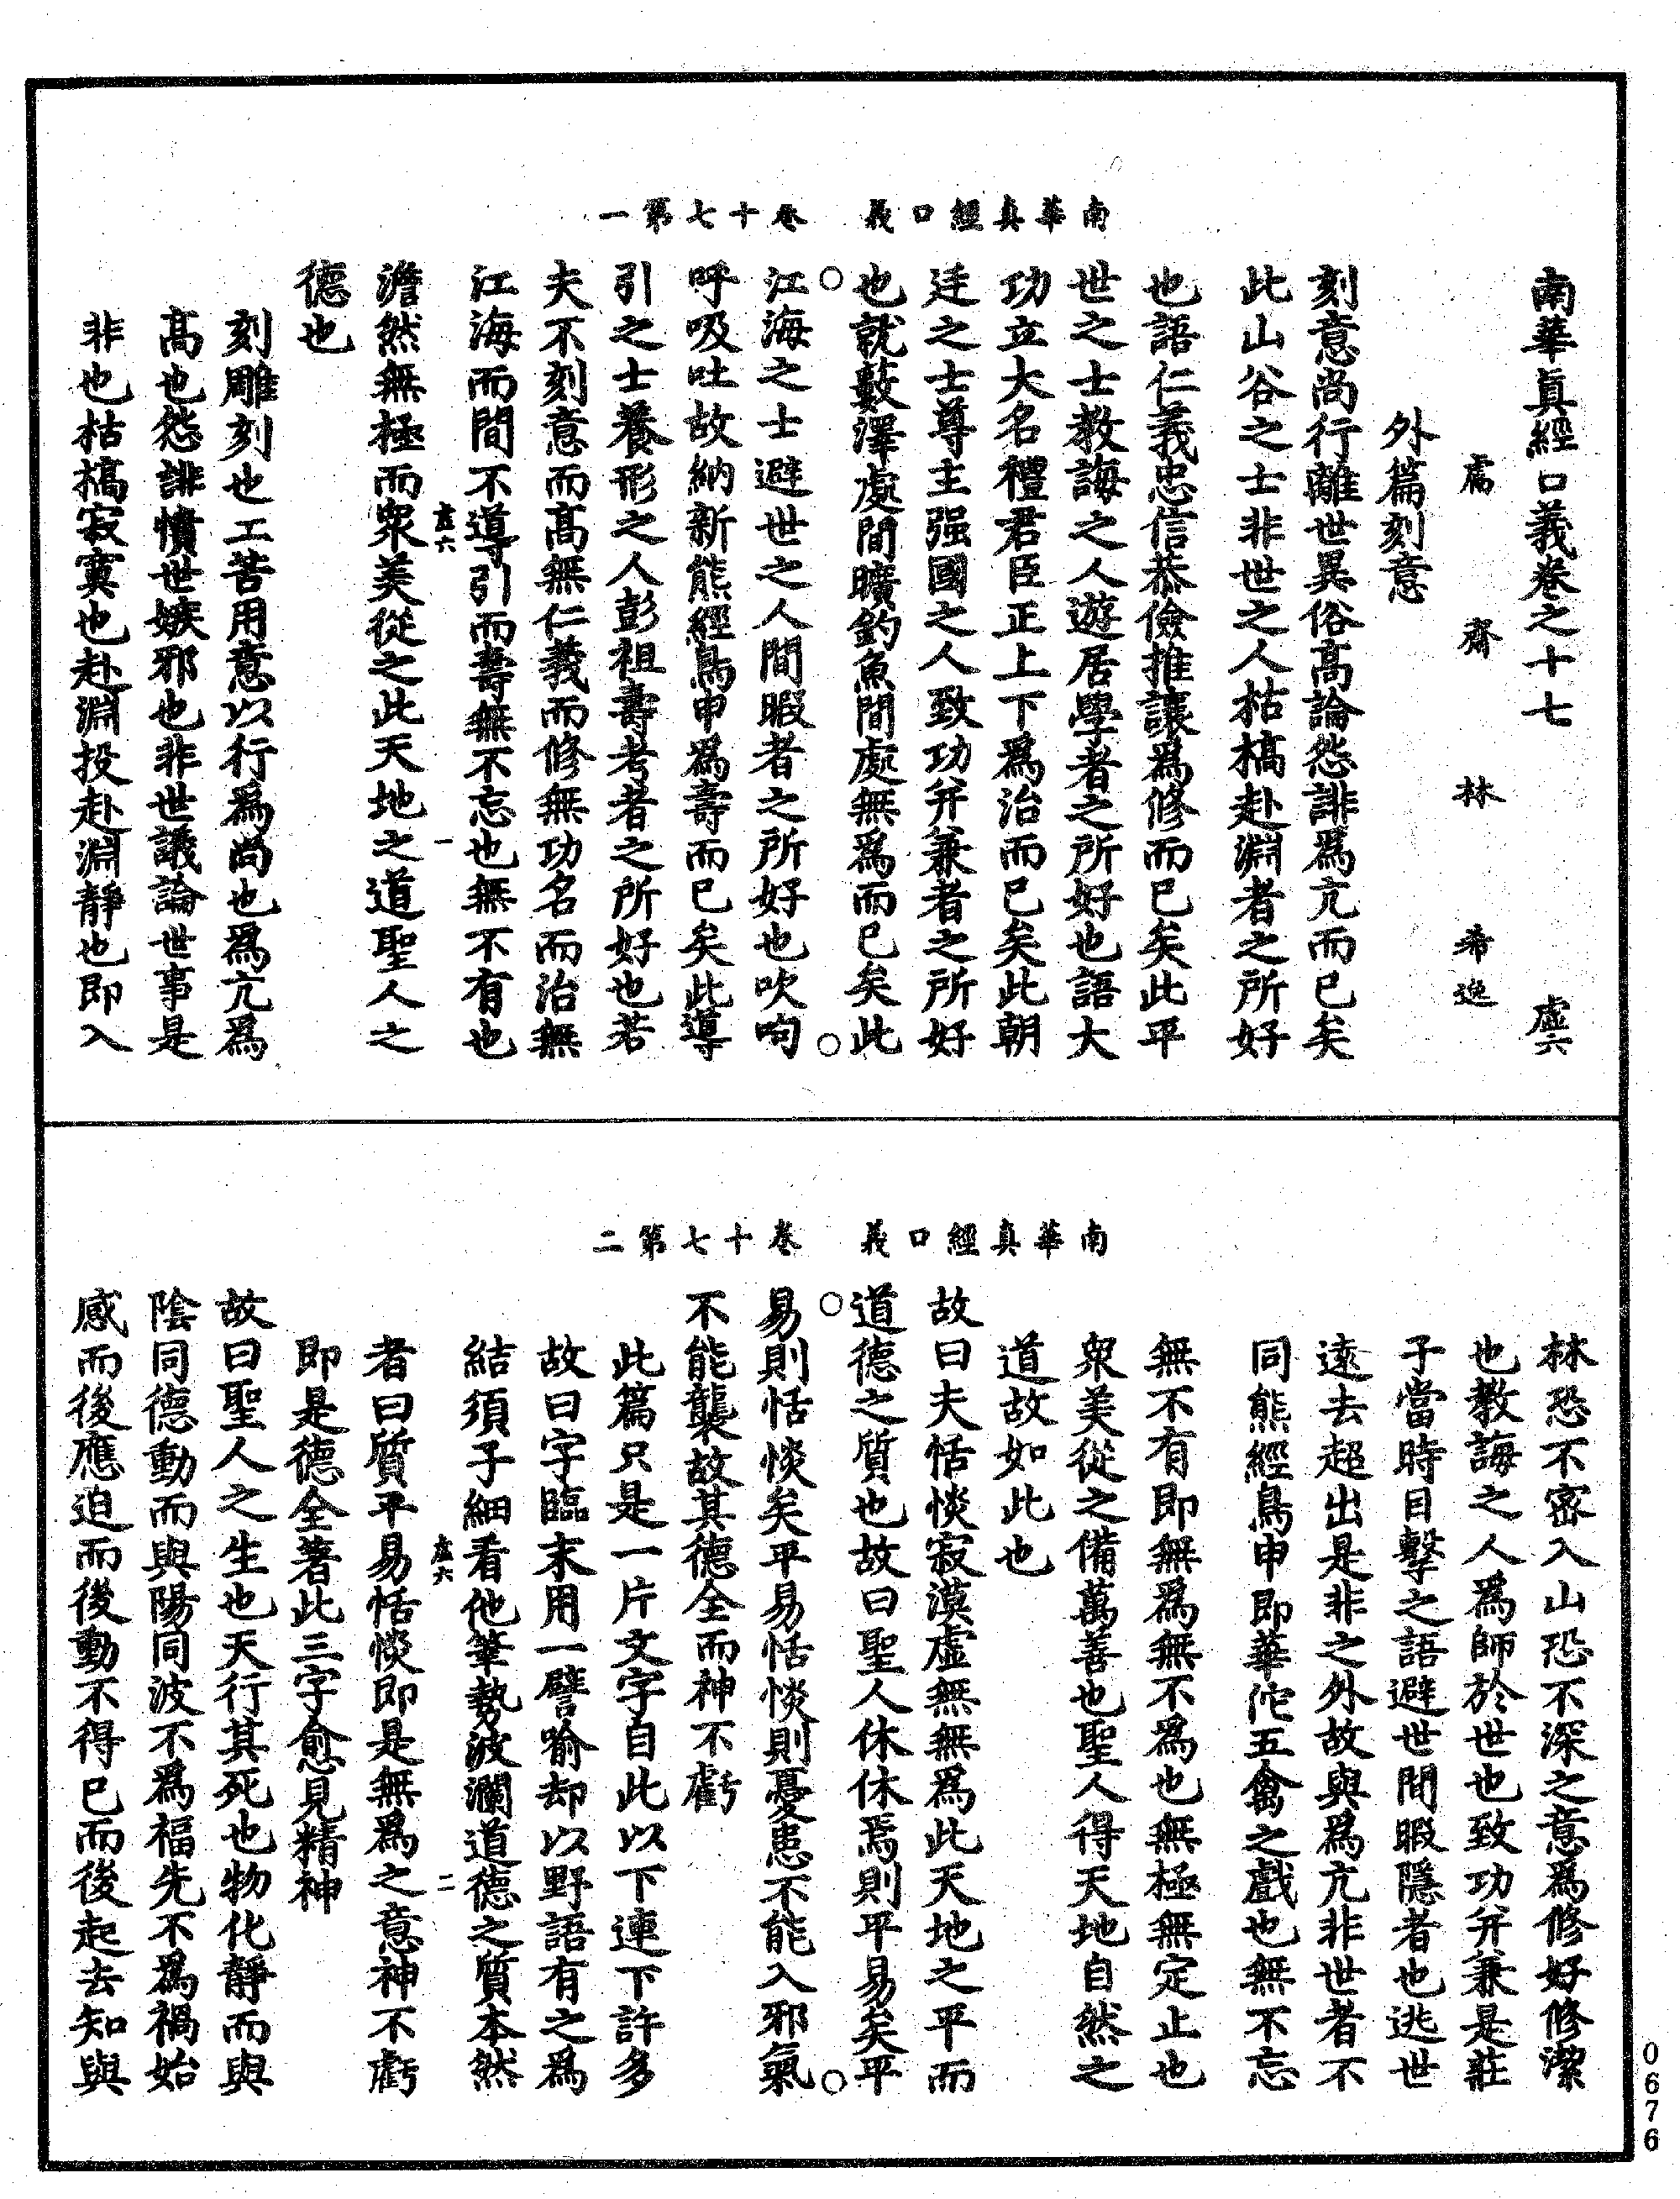 南華真經口義　卷十七第一
南華眞經口義卷之十七　虛六
鬳齋林希逸
外篇刻意
刻意尚行離世異俗髙論怨誹爲亢而已矣
此山谷之士非世之人枯槁赴淵者之所好
也語仁義忠信恭儉推讓爲修而已矣此平
世之士教誨之人遊居學者之所好也語大
功立大名禮君臣正上下爲治而已矣此朝
廷之士尊主强國之人致功并兼者之所好
也就藪澤處間曠釣魚間處無爲而已矣此
江海之士避世之人間暇者之所好也吹呴
呼吸吐故納新熊經鳥申爲壽而已矣此導
引之士養形之人彭祖壽考者之所好也若
夫不刻意而髙無仁義而修無功名而治無
江海而間不導引而壽無不忘也無不有也
虛六　一
澹然無極而衆美從之此天地之道聖人之
德也
刻雕刻也工苦用意以行爲尚也爲亢爲
髙也怨誹憤世嫉邪也非世議論世事是
非也枯槁寂寞也赴淵投赴淵靜也即入
南華真經口義　卷十七第二
林恐不宻入山恐不深之意爲修好修潔
也教誨之人爲師於世也致功并兼是莊
子當時目擊之語避世間暇隱者也逃世
遠去超出是非之外故與爲亢非世者不
同熊經鳥申即華佗五禽之戲也無不忘
無不有即無爲無不爲也無極無定止也
衆美從之備萬善也聖人得天地自然之
道故如此也
故曰夫恬惔寂漠虛無無爲此天地之平而
道德之質也故曰聖人休休焉則平易矣平
易則恬惔矣平易恬惔則憂患不能入邪氣
不能襲故其德全而神不虧
此篇只是一片文字自此以下連下許多
故曰字臨末用一譬喻却以野語有之爲
結須子細看他筆勢波瀾道德之質本然
虛六　二
者曰質平易恬惔即是無爲之意神不虧
即是德全著此三字愈見精神
故曰聖人之生也天行其死也物化靜而與
陰同德動而與陽同波不爲福先不爲禍始
感而後應迫而後動不得已而後起去知與
0676